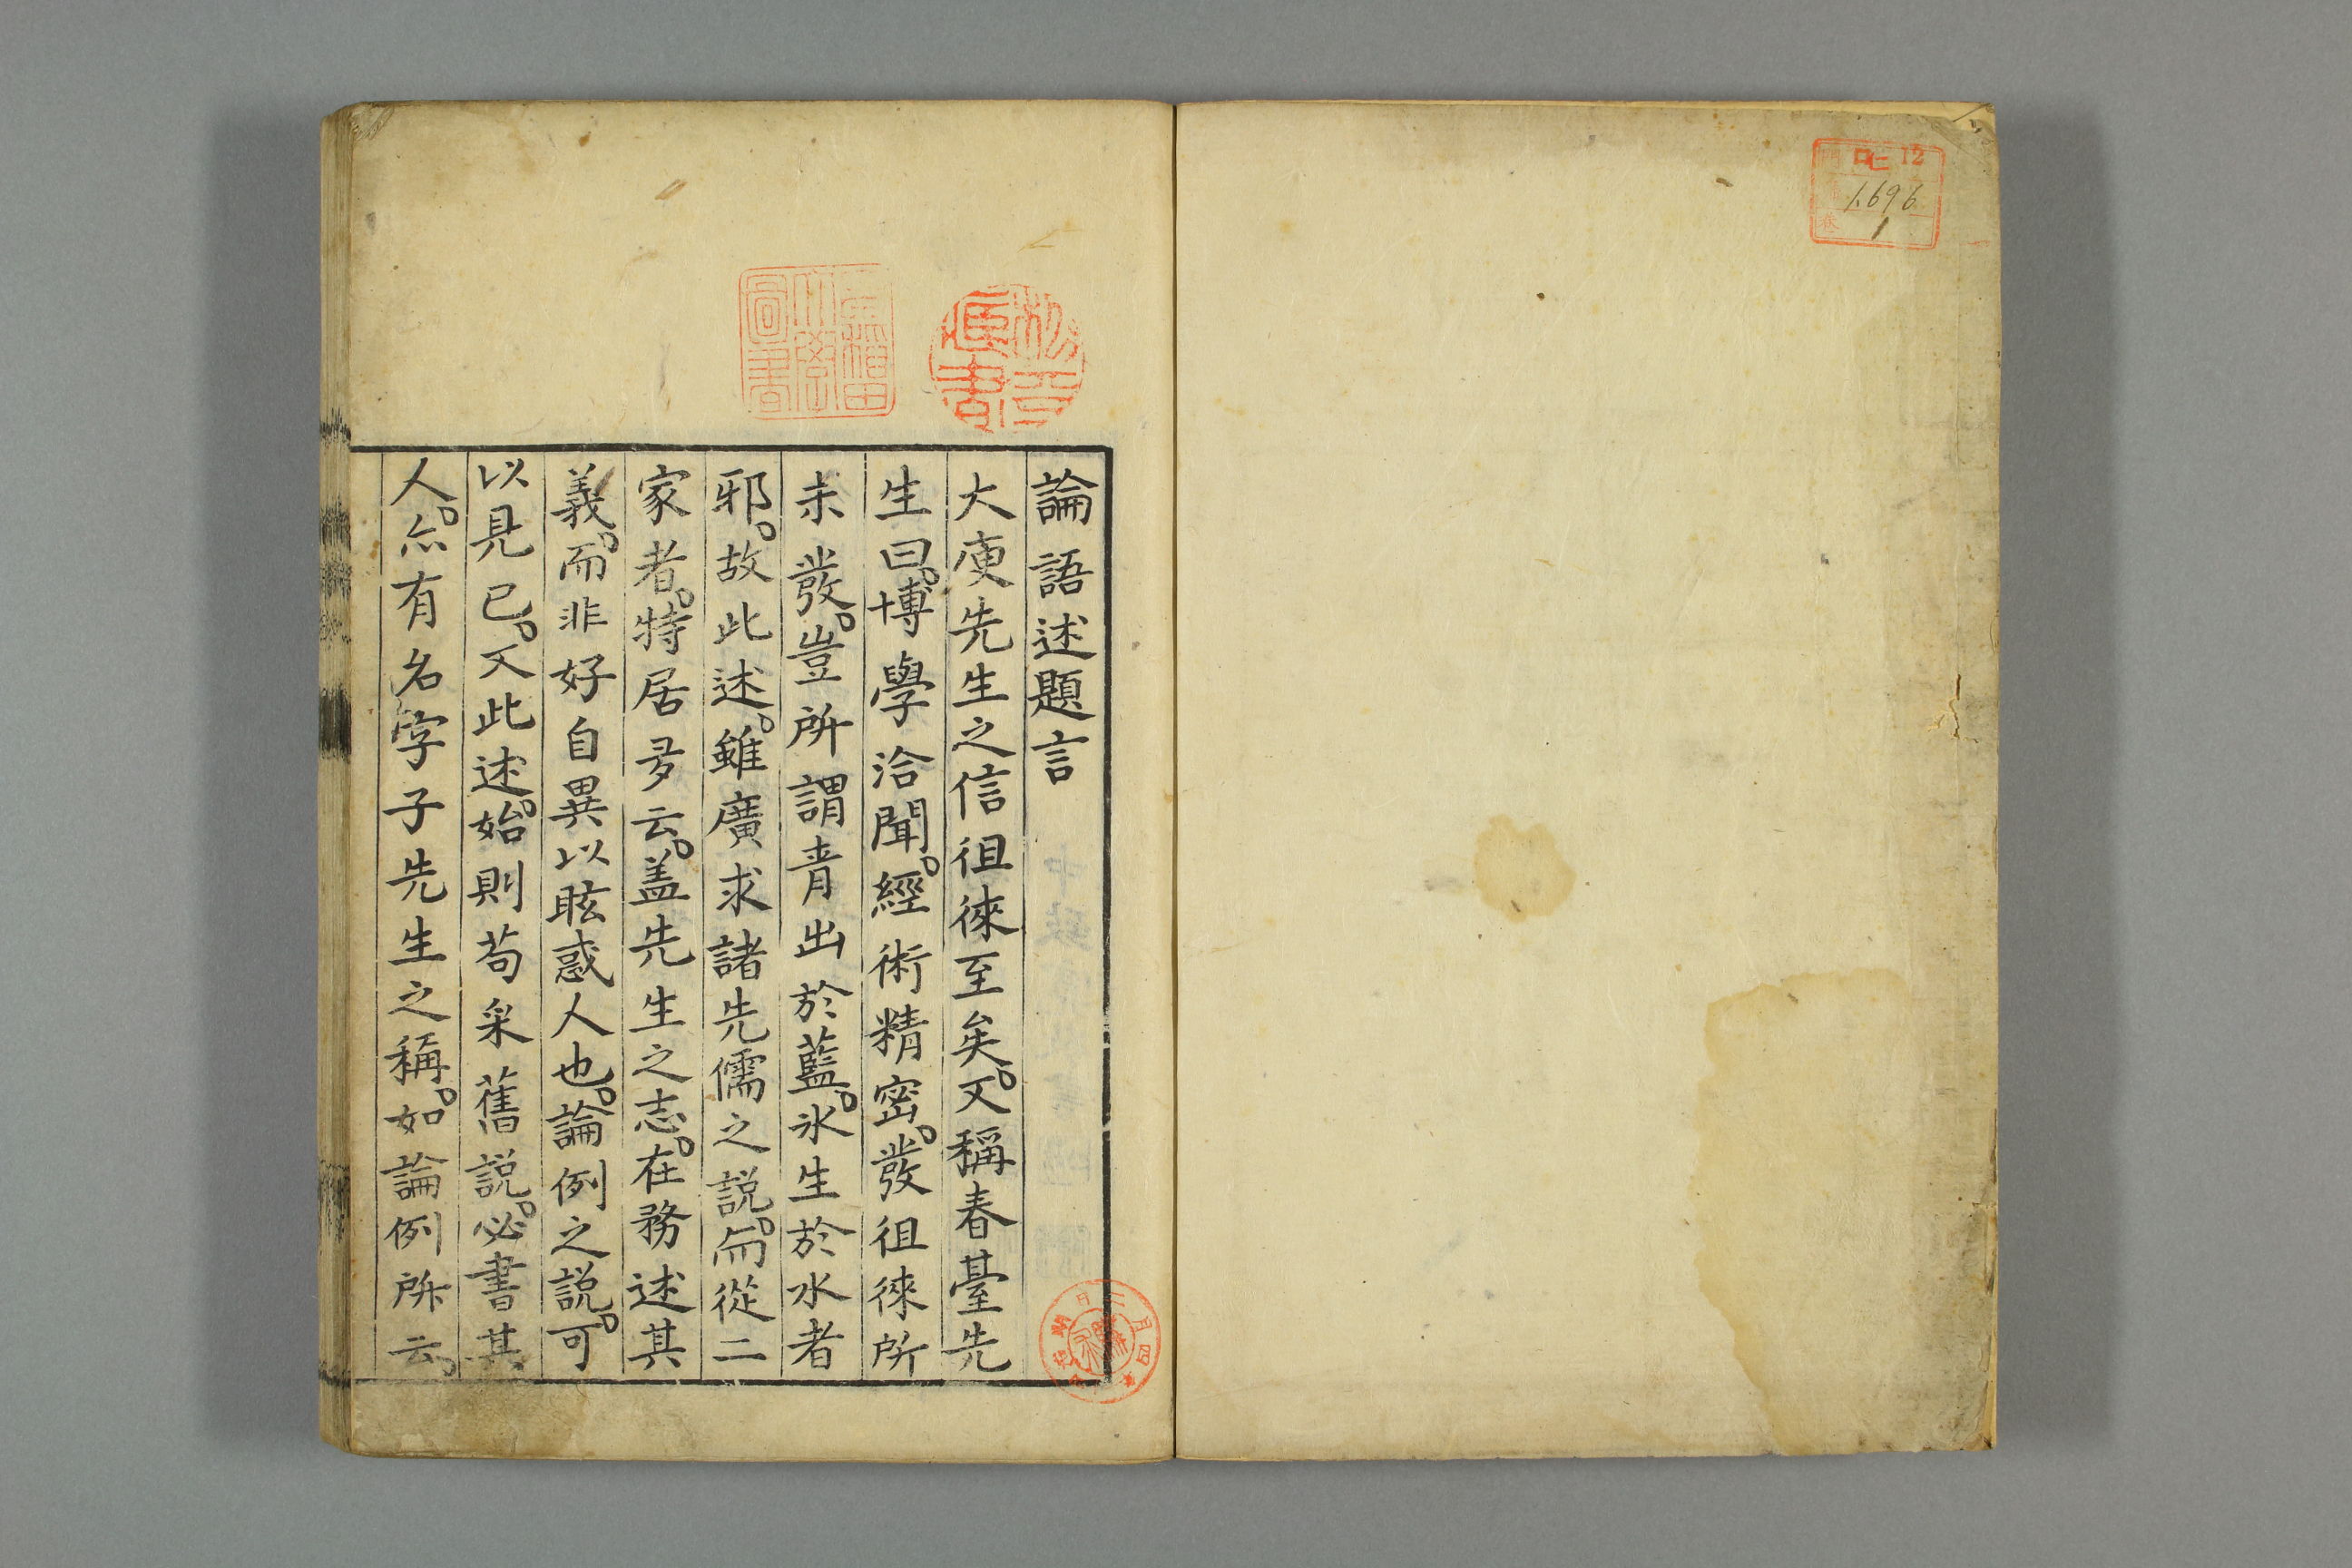 ロ 12
1696
1
論語述題言
大庾先生之信徂徠至矣。又稱春臺先
生曰。博學洽聞。經術精密。發徂徠所
未發。豈所謂青出於藍。氷生於水者
邪。故此述。雖廣求諸先儒之説。而從二
家者。特居多云。盖先生之志。在務述其
義。而非好自異以眩惑人也。論例之説。可
以見已。又此述。始則苟采舊説。必書其
人。亦有名字子先生之稱。如論例所云。
早稲田大學圖書
藏書